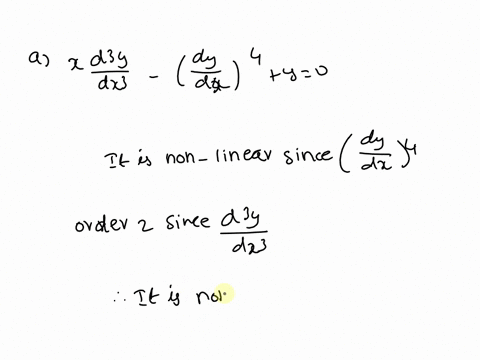 a) x d3y/dx3 - (dy/dx)^4 + y = 0
It is non-linear since (dy/dx)^4
order 2 since d3y/dx3
∴ It is non